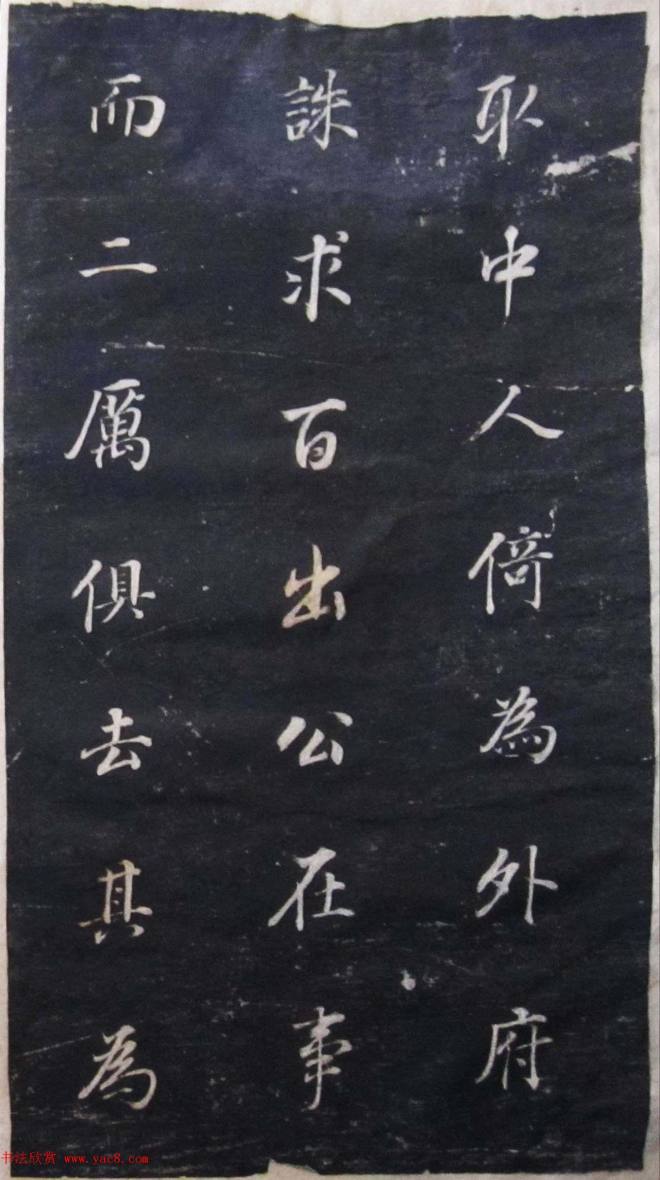 取中人倚為外府
誅求百出公在事
而二厲俱去其為
书法欣赏 www.yac8.com